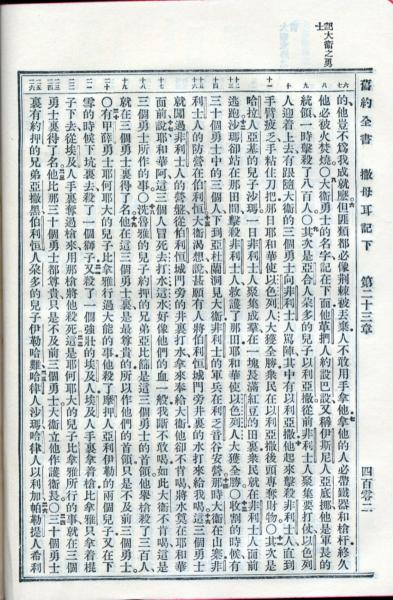 記大衛之勇士
舊約全書 撒母耳記下 第二十三章 四百零二
的他豈不爲我成就○但匪類都必像荊棘被丟棄人不敢用手拿他拿他的人必帶鐵器和槍杆終久
他必被火焚燒○大衛勇士的名字記在下面他革捫人約設巴設又稱伊斯尼人亞底挪他是軍長的
統領一時擊殺了八百人○其次是亞合人朵多的兒子以利亞撒從前非利士人聚集要打仗以色列
人迎着上去有跟隨大衛的三個勇士向非利士人罵陣其中有以利亞撒他起來擊殺非利士人直到
手臂疲乏手粘住刀把那日耶和華使以色列人大獲全勝衆民在以利亞撒後頭專奪財物○其次是
哈拉人亞基的兒子沙瑪一日非利士人聚集成羣在一塊長滿紅豆的田裏衆民就在非利士人面前
逃跑沙瑪卻站在那田間擊殺非利士人救護了那田耶和華使以色列人大獲全勝○收割的時候有
三十個勇士中的三個人下到亞杜蘭洞見大衛非利士的軍兵在利乏音谷安營那時大衛在山寨非
利士人的防營在伯利恒大衛渴想說甚願有人將伯利恒城門旁井裏的水打來給我喝這三個勇士
就闖過非利士人的營盤從伯利恒城門旁的井裏打水拿來奉給大衛他卻不肯喝將水奠在耶和華
面前說耶和華阿這三個人冒死去打水這水好像他們的血一般我斷不敢喝如此大衛不肯喝這是
三個勇士所作的事○洗魯雅的兒子約押的兄弟亞比篩是這三個勇士的首領他舉槍殺了三百人
就在三個勇士裏得了名他在這三個勇士裏是最尊貴的所以作他們的首領只是不及前三個勇士
○有甲薛勇士耶何耶大的兒子比拿雅行過大能的事他殺了摩押人亞利伊勒的兩個兒子又在下
雪的時候下坑裏去殺了一個獅子又殺了一個強壯的埃及人埃及人手裏拿着槍比拿雅只拿着棍
子下去從埃及人手裏奪過槍來用那槍將他殺死這是耶何耶大的兒子比拿雅所行的事就在三個
勇士裏得了名他比那三十個勇士都尊貴只是不及前三個勇士大衛立他作護衛長○三十個勇士
裏有約押的兄弟亞撒黑伯利恒人朵多的兒子伊勒哈難哈律人沙瑪哈律人以利加帕勒提人希利